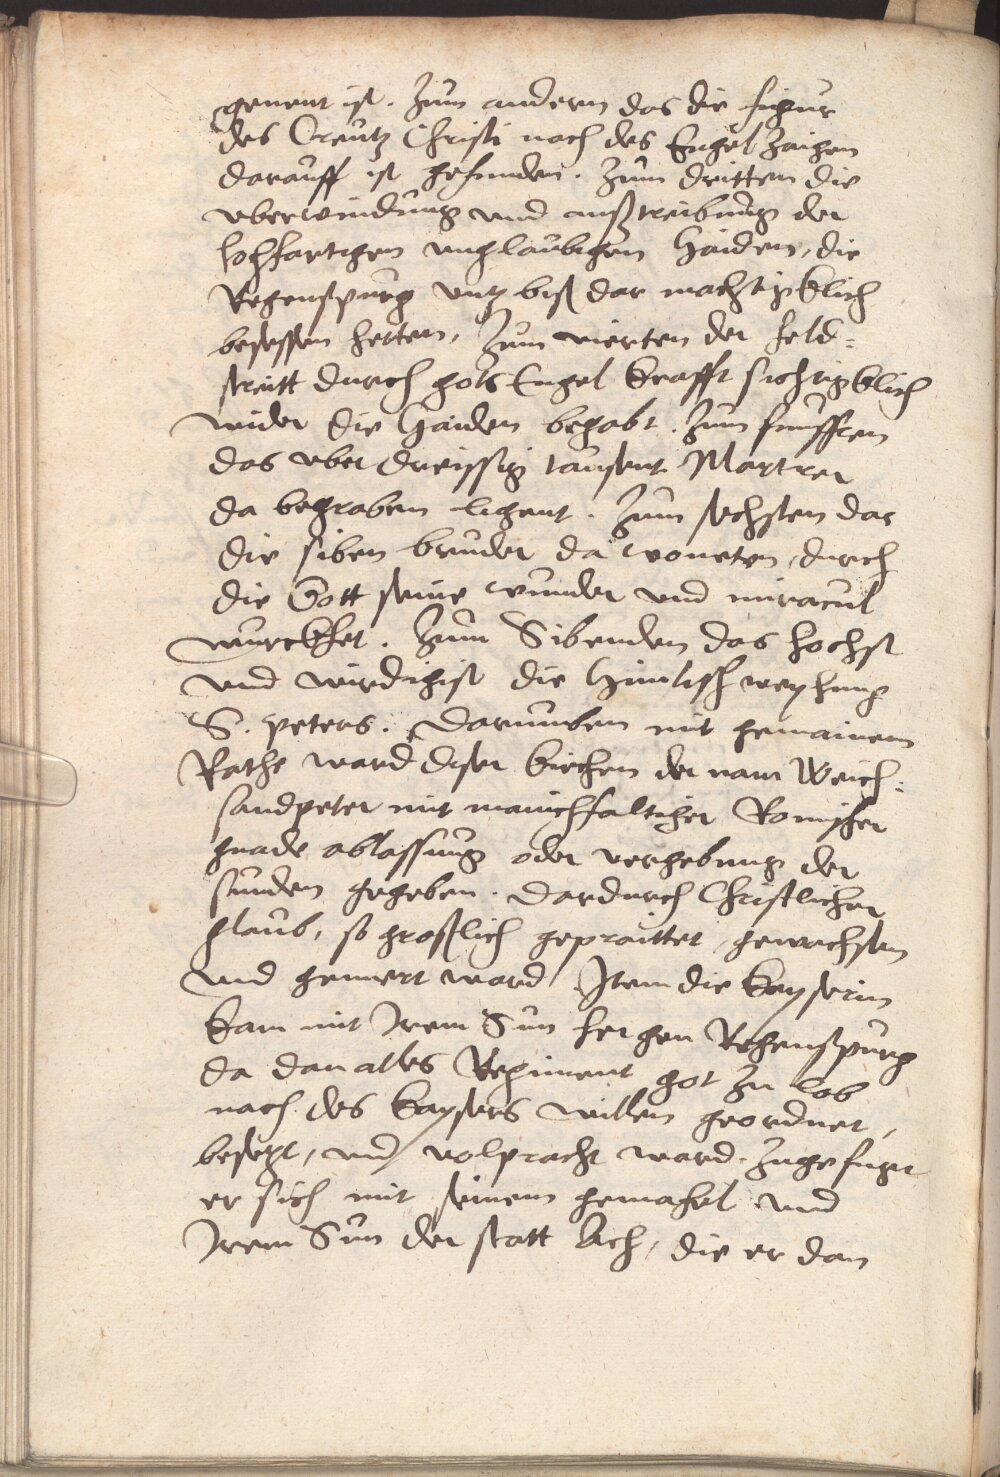 genent ist. Zum andern das die figur
des Creutz Christi nach des Engel Zaigen
darauff ist gefunden. Zum dritten die
uberwindung und außtreibung der
hochfartigen unglaubigen Haiden, die
Regenspurg untz biß dar machtigklich
besessen hetten, Zum vierten der feld-
streitt durch gots Engel krafft sichtigklich
wider die Haiden behabt. Zum funfften
das uber dreissig tausent Martrer
da begraben ligent. Zum sechsten das
die siben bruder da woneten, durch
die Gott seine wunder und miracul
wurckhet. Zum Sibenden das hochst
und wirdigist die Himlisch weyhung
S. peters. Darumben mit gemainem
Rathe ward diser kirchen der nam Weich-
sandpeter mit manichfaltiger Romischer
gnade ablassung oder vergebung der
sunden gegeben. Dardurch Christlicher
glaub, so groslich gepraittet, gewachsen
und gemert ward. Item die kayserin
kam mit Irem Sun her gen Regenspurg
da dan alles Regiment got zu lob
nach des kaysers willen geordnet,
besetzt, und volpracht ward. Zugefugt
er sich mit seinem gemahel und
Irem Sun der statt Ach, die er dan